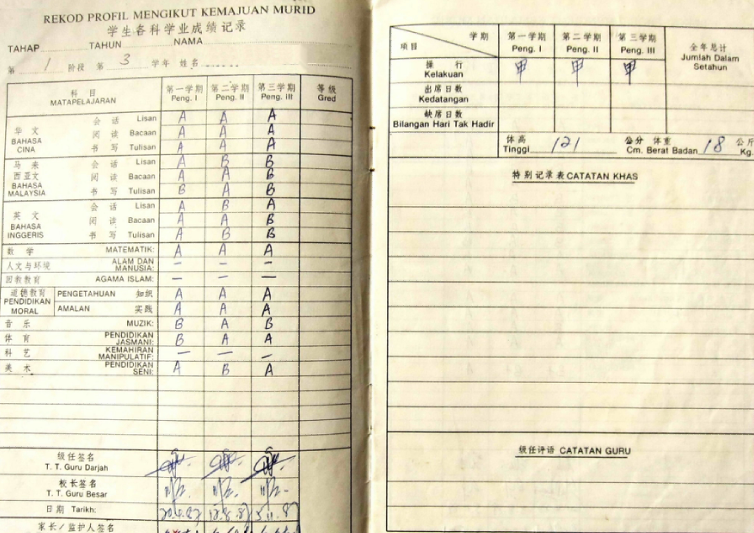 REKOD PROFIL MENGIKUT KEMAJUAN MURID
学生各科学业成绩记录
TAHAP TAHUN NAMA
第 1 阶段 第 3 学年 姓名
科目 MATAPELAJARAN 第一学期 Peng. I 第二学期 Peng. II 第三学期 Peng. III 等级 Gred
华文 BAHASA CINA
会话 Lisan A A A
阅读 Bacaan A A A
书写 Tulisan A A A
马来西亚文 BAHASA MALAYSIA
会话 Lisan A B B
阅读 Bacaan A A B
书写 Tulisan B A B
英文 BAHASA INGGERIS
会话 Lisan A B A
阅读 Bacaan A A B
书写 Tulisan A B B
数学 MATEMATIK: A A A
人文与环境 ALAM DAN MANUSIA: — — —
回教教育 AGAMA ISLAM: — — —
道德教育 PENDIDIKAN MORAL
PENGETAHUAN 知识 A A A
AMALAN 实践 A A A
音乐 MUZIK: B A B
体育 PENDIDIKAN JASMANI: B A A
科艺 KEMAHIRAN MANIPULATIF: — — —
美术 PENDIDIKAN SENI: A B A
级任签名
T. T. Guru Darjah
校长签名
T. T. Guru Besar
日期 Tarikh:
家长/监护人签名
项目 学期 第一学期 Peng. I 第二学期 Peng. II 第三学期 Peng. III 全年总计 Jumlah Dalam Setahun
操行 Kelakuan 甲 甲 甲
出席日数
Kedatangan
缺席日数
Bilangan Hari Tak Hadir
体高 Tinggi 121 公分 Cm. 体重 Berat Badan 18 公斤 Kg.
特别记录表 CATATAN KHAS
级任评语 CATATAN GURU